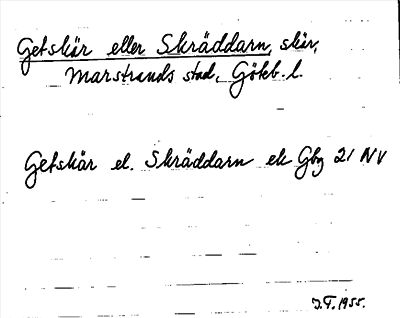 Getskär eller Skräddarn, skär,
Marstrands stad, Göteb. l.
Getskär el. Skräddarn ek Gbg 21 NV
J.T. 1955.